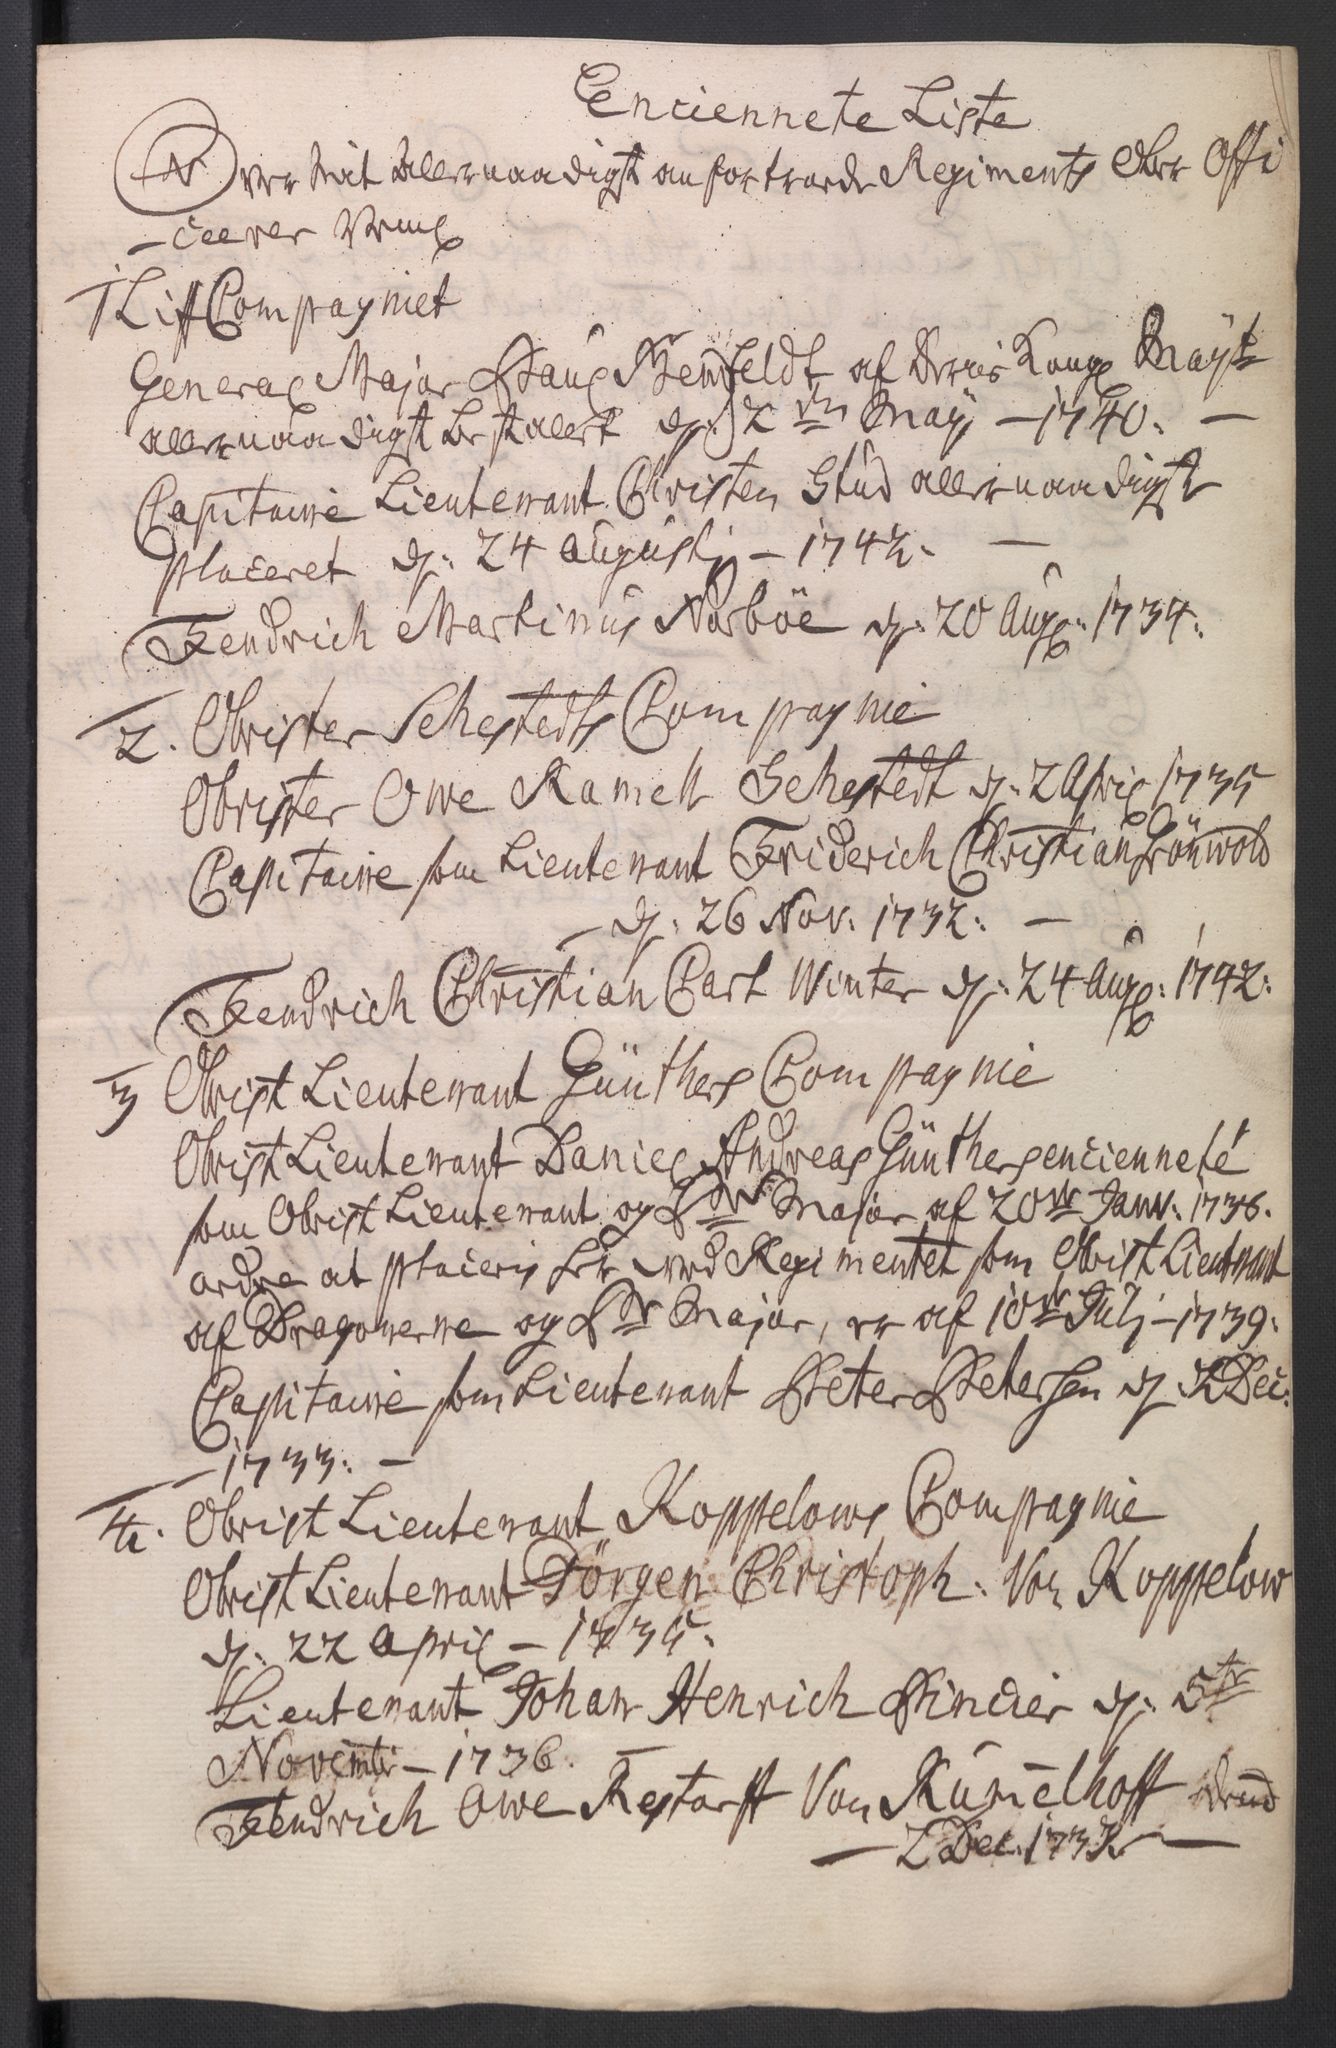 Enciennete Liste
N
over mit allernaadigst anfortroede Regiments Over Offi
-ceerer
1 Liff Compagniet
General Major af Deris Kongl Mayts
allernaadigst bestallet d: 2den Maij - 1740. -
Capitaine Lieutenant Christen Stud allernaadigst
placeret d: 24 Augustj - 1742. -
Fendrich Martinus Norböe d: 20 Aug: 1734.
2. Obrister Sehestedts Compagnie
Obrister Owe Ramell Sehestedt d: 2 April 1735
Capitaine som Lieutenant Friderich Christian Grönwold
- d: 26 Nov: 1732: -
Fendrich Christian Carl Winter d: 24 Aug: 1742:
3 Obrist Lieutenant Günthers Compagnie
Obrist Lieutenant Daniel Andreas Günthers encienneté
som Obrist Lieutenant og Major af 20de Janv: 1736.
ordre at placeris her ved Regimentet som Obrist Lieutenant
af Dragonerne og Major, er af 10de Julj - 1739:
Capitaine som Lieutenant Peter Petersen d Dec:
- 1733: -
4. Obrist Lieutenant Koppelows Compagnie
Obrist Lieutenant Jörgen Christoph: Von Koppelow
d: 22 April - 1735:
Lieutenant Johan Henrich Pincier d: 5te
Novembr - 1736.
Fendrich Owe Restorff Von Kummelhoff dend
- 2 Dec. -